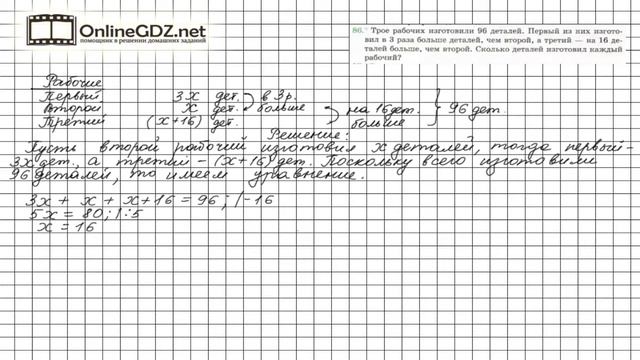 OnlineGDZ.net
помощник в решении домашних заданий
86. Трое рабочих изготовили 96 деталей. Первый из них изгото-
вил в 3 раза больше деталей, чем второй, а третий — на 16 де-
талей больше, чем второй. Сколько деталей изготовил каждый
рабочий?
Рабочие
Первый 3х дет. в 3 р.
Второй х дет. больше на 16 дет. 96 дет
Третий (х+16) дет. больше
Решение:
Пусть второй рабочий изготовил х деталей, тогда первый -
3х дет., а третий - (х+16) дет. Поскольку всего изготовили
96 деталей, то имеем уравнение.
3х + х + х+16 = 96 ; /-16
5х = 80; /:5
х = 16